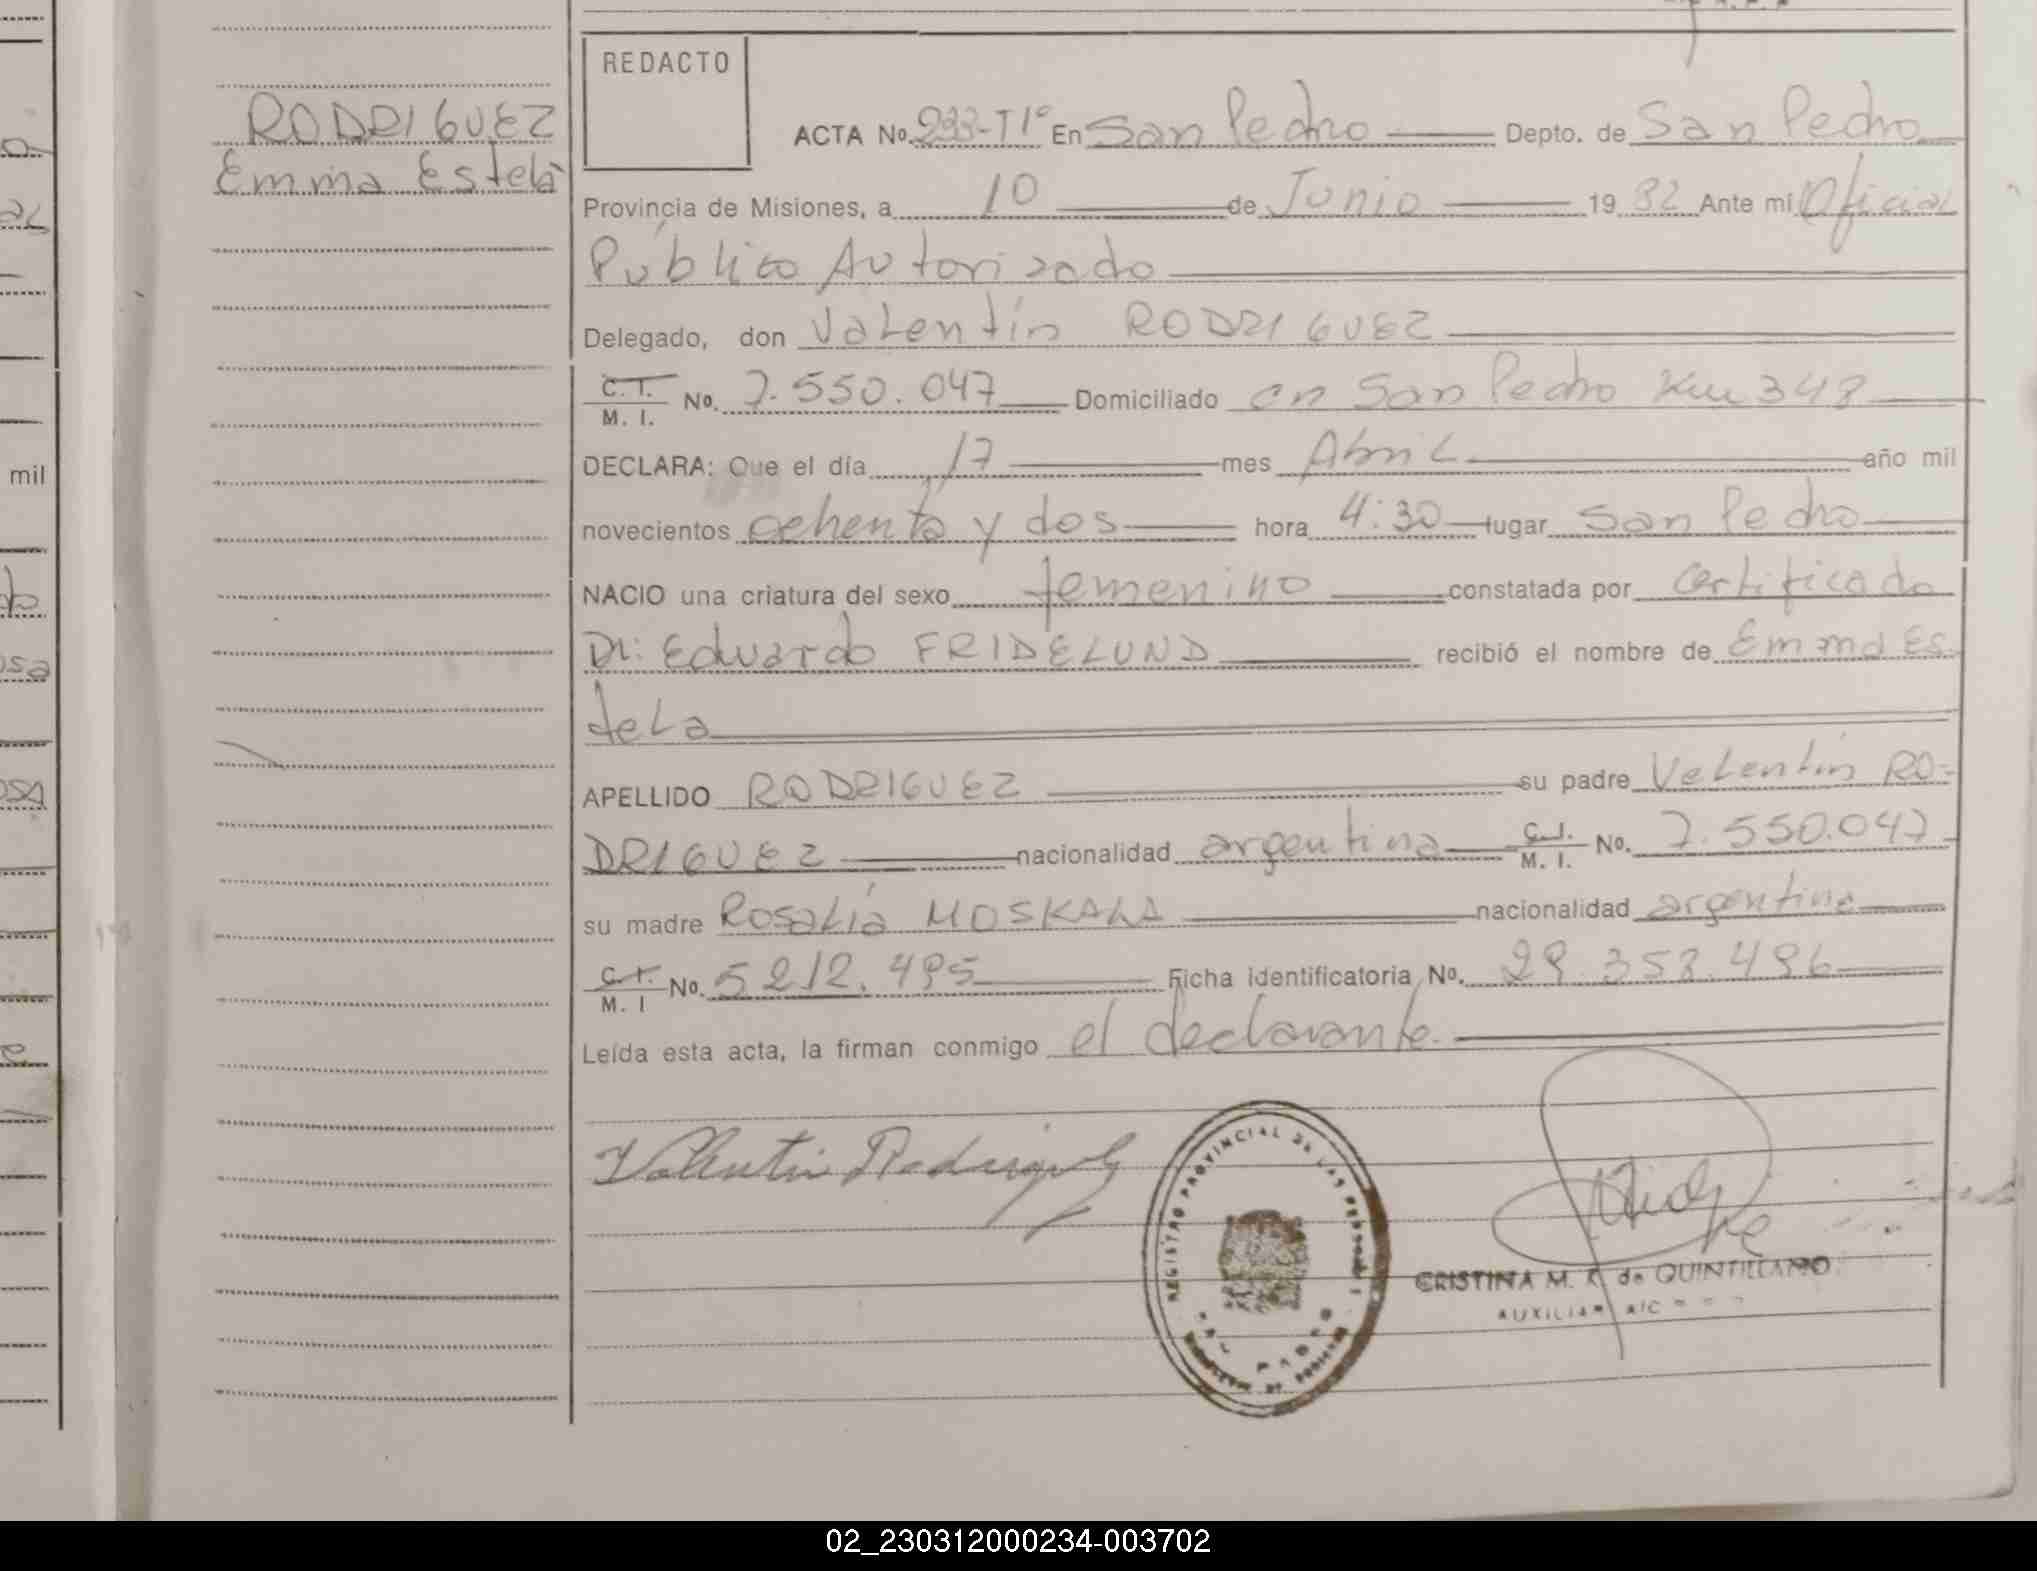 RODRIGUEZ
Emma Estela
REDACTO
ACTA No. 233-T1° En San Pedro Depto. de San Pedro
Provincia de Misiones, a 10 de Junio 19 82 Ante mi Oficial
Público Autorizado
Delegado, don Valentín RODRIGUEZ
C. I. M. I. No. 7.550.047 Domiciliado en San Pedro Km 348
DECLARA: Que el día 17 mes Abril año mil
novecientos ochenta y dos hora 4:30 lugar San Pedro
NACIO una criatura del sexo femenino constatada por certificado
Dr: Eduardo FRIDELUND recibió el nombre de Emma Es
tela
APELLIDO RODRIGUEZ su padre Valentín RO-
DRIGUEZ nacionalidad argentina C.I. M. I. No. 7.550.047
su madre Rosalía MOSKALA nacionalidad argentina
C.I. M. I No. 5212.495 Ficha identificatoria No. 29.358.496
Leída esta acta, la firman conmigo el declarante.
Valentin Rodriguez
REGISTRO PROVINCIAL DE LAS PERSONAS
CRISTINA M. de QUINTILLANO
AUXILIAR
mil
02_230312000234-003702